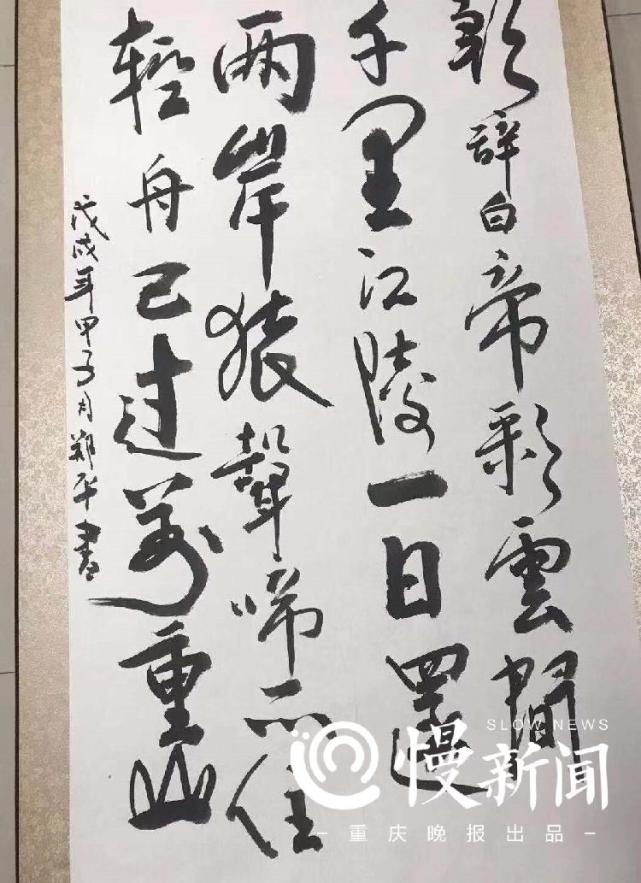 朝辞白帝彩雲間
千里江陵一日還
两岸猿聲啼不住
輕舟已过萬重山
戊戌年甲子月鄭平書
SLOW NEWS
慢新闻
－重庆晚报出品－